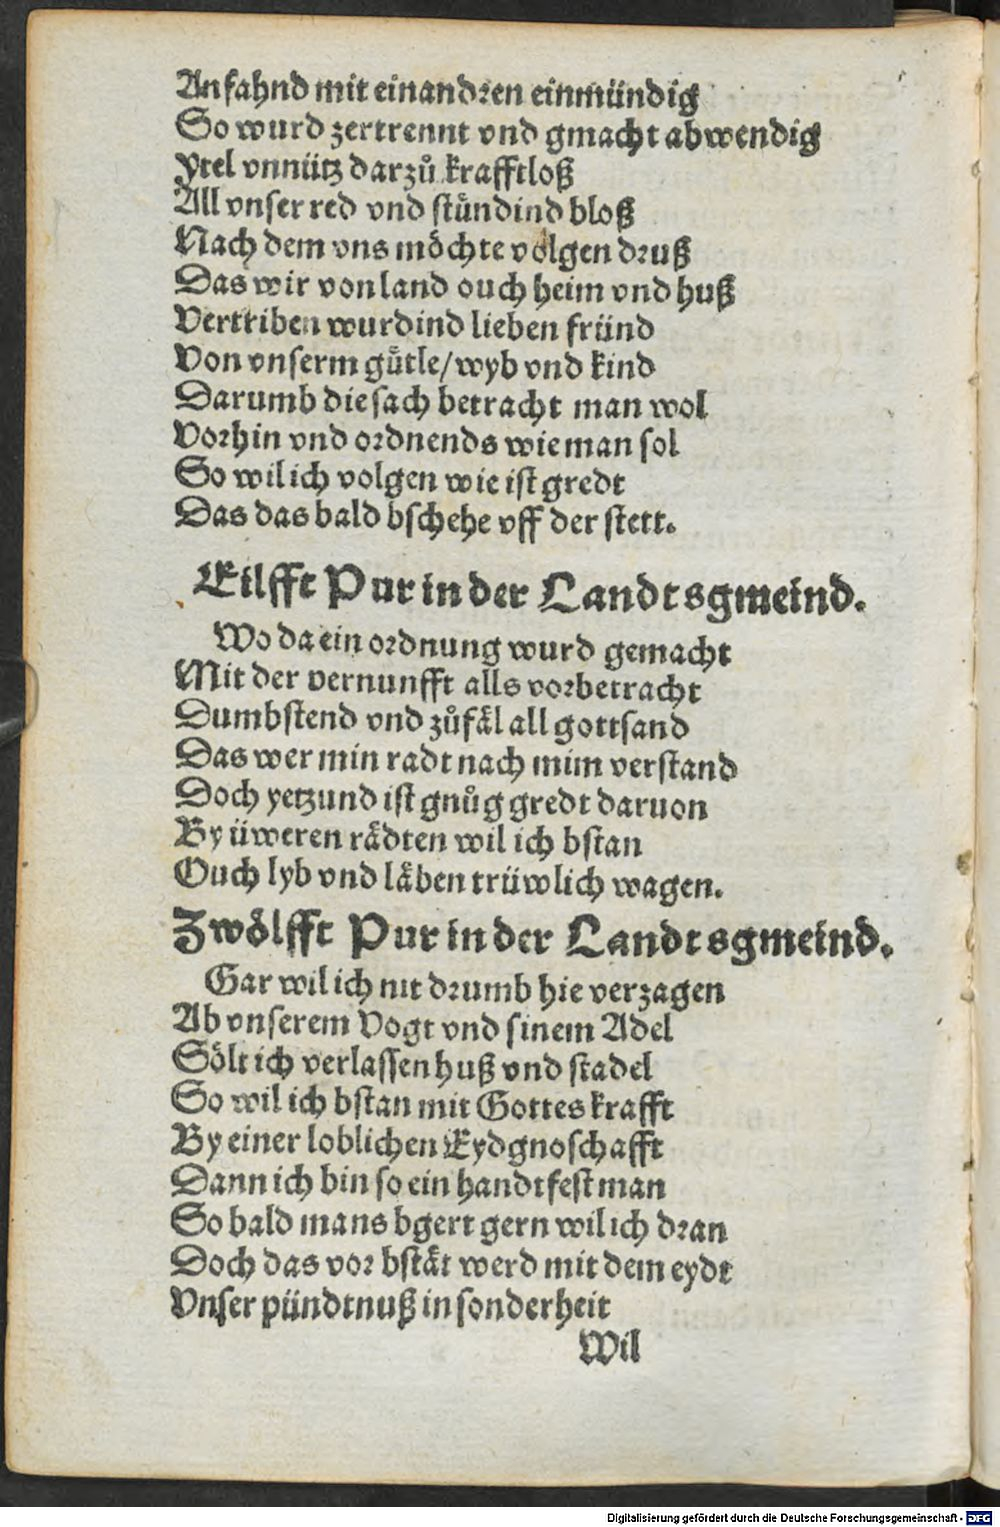 Anfahnd mit einandren einmündig
So wurd zertrennt vnd gmacht abwendig
Ytel vnnütz darzů krafftloß
All vnser red vnd stündind bloß
Nach dem vns möchte volgen druß
Das wir von land ouch heim vnd huß
Vertriben wurdind lieben fründ
Von vnserm gůtle/ wyb vnd kind
Darumb die sach betracht man wol
Vorhin vnd ordnends wie man sol
So wil ich volgen wie ist gredt
Das das bald bschehe vff der stett.
Eilfft Pur in der Landtsgmeind.
Wo da ein ordnung wurd gemacht
Mit der vernunfft alls vorbetracht
Dumbstend vnd zůfäl all gottsand
Das wer min radt nach mim verstand
Doch yetzund ist gnůg gredt daruon
By üweren rädten wil ich bstan
Ouch lyb vnd läben trüwlich wagen.
Zwölfft Pur in der Landtsgmeind.
Gar wil ich nit drumb hie verzagen
Ab vnserem Vogt vnd sinem Adel
Sölt ich verlassen huß vnd stadel
So wil ich bstan mit Gottes krafft
By einer loblichen Eydgnoschafft
Dann ich bin so ein handtfest man
So bald mans bgert gern wil ich dran
Doch das vor bstät werd mit dem eydt
Vnser pündtnuß in sonderheit
Wil
Digitalisierung gefördert durch die Deutsche Forschungsgemeinschaft - DFG